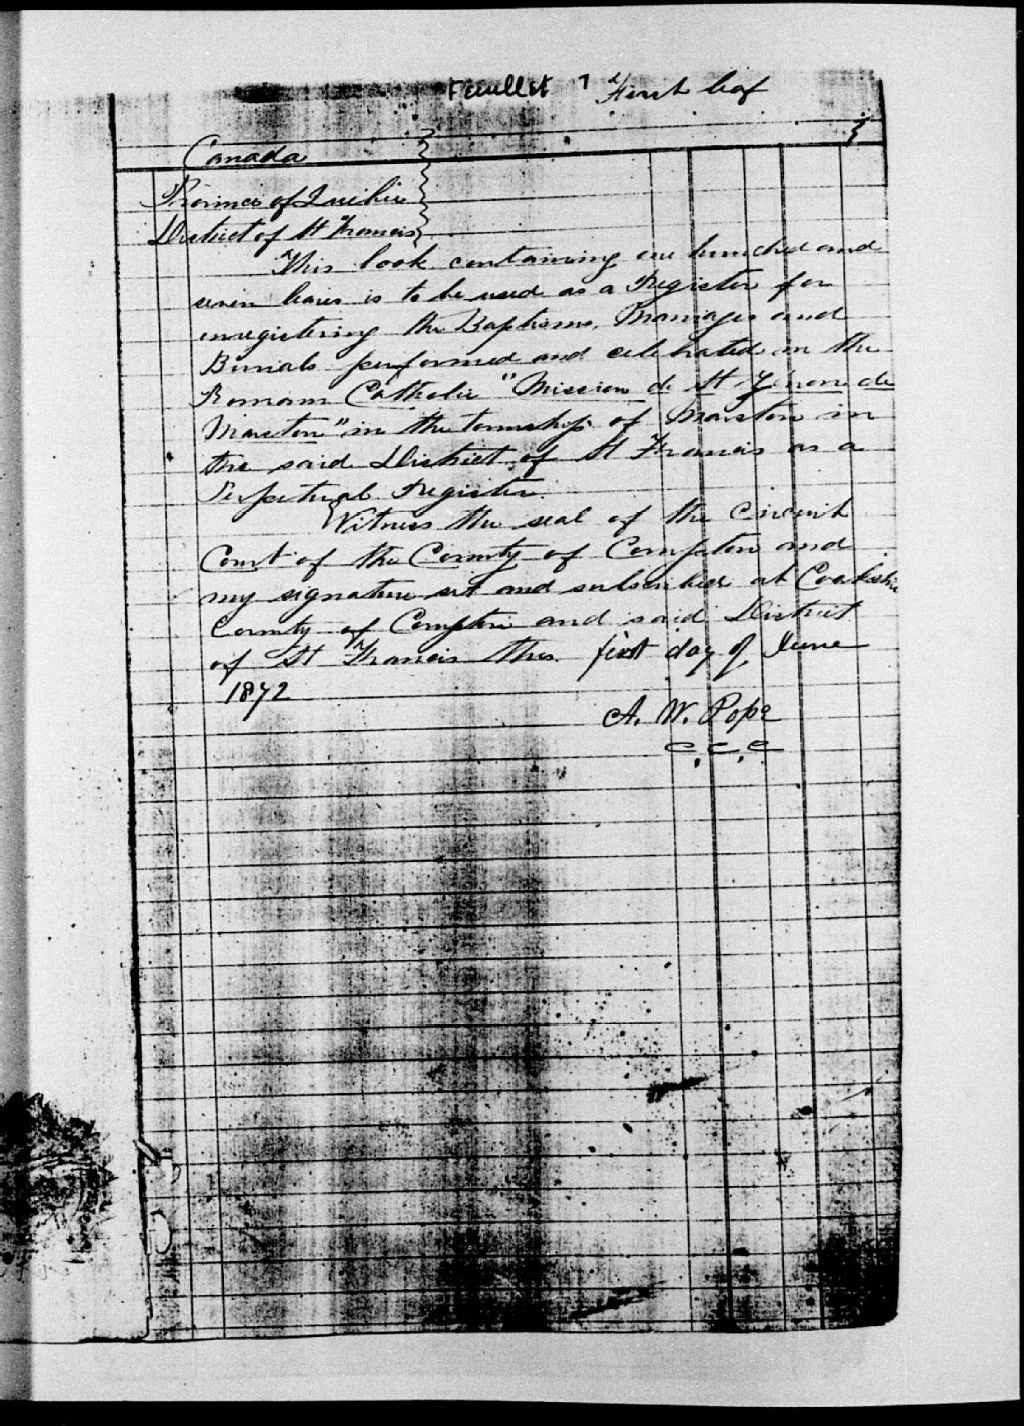 Feuillet 1 First leaf
Canada
Province of Quebec
District of St Francis
This book containing one hundred and
seven leaves is to be used as a Register for
enregistering the Baptisms, Marriages and
Burials performed and celebrated in the
Roman Catholic "Mission de St Zenon de
Marston" in the township of Marston in
the said District of St Francis as a
Perpetual Register.
Witness the seal of the Circuit
Court of the County of Compton and
my signature set and subscribed at Cookshire
County of Compton and said District
of St Francis this first day of June
1872
A. W. Pope
C. C. C